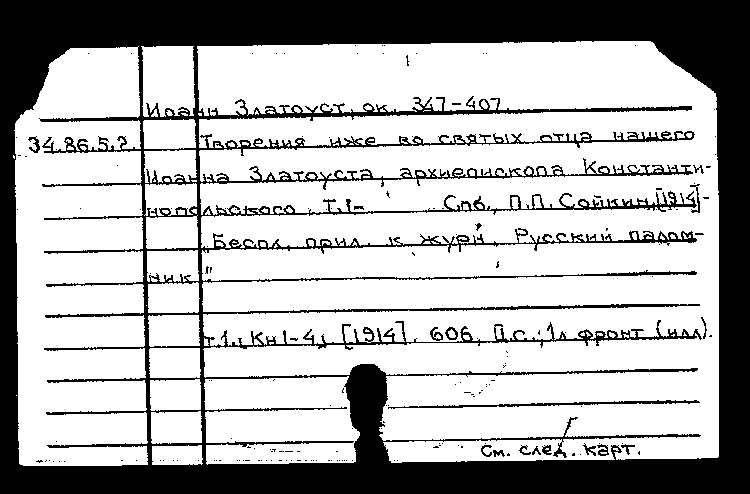 Иоанн Златоуст, ок. 347-407.
34.86.5.2. Творения иже во святых отца нашего
Иоанна Златоуста, архиепископа Константи-
нопольского. Т.1- Спб., П.П. Сойкин, [1914]-
"Беспл. прил. к журн. Русский палом-
ник"
Т.1. Кн 1-4, [1914]. 606, II с.; 1л фронт (илл).
См. след. карт.